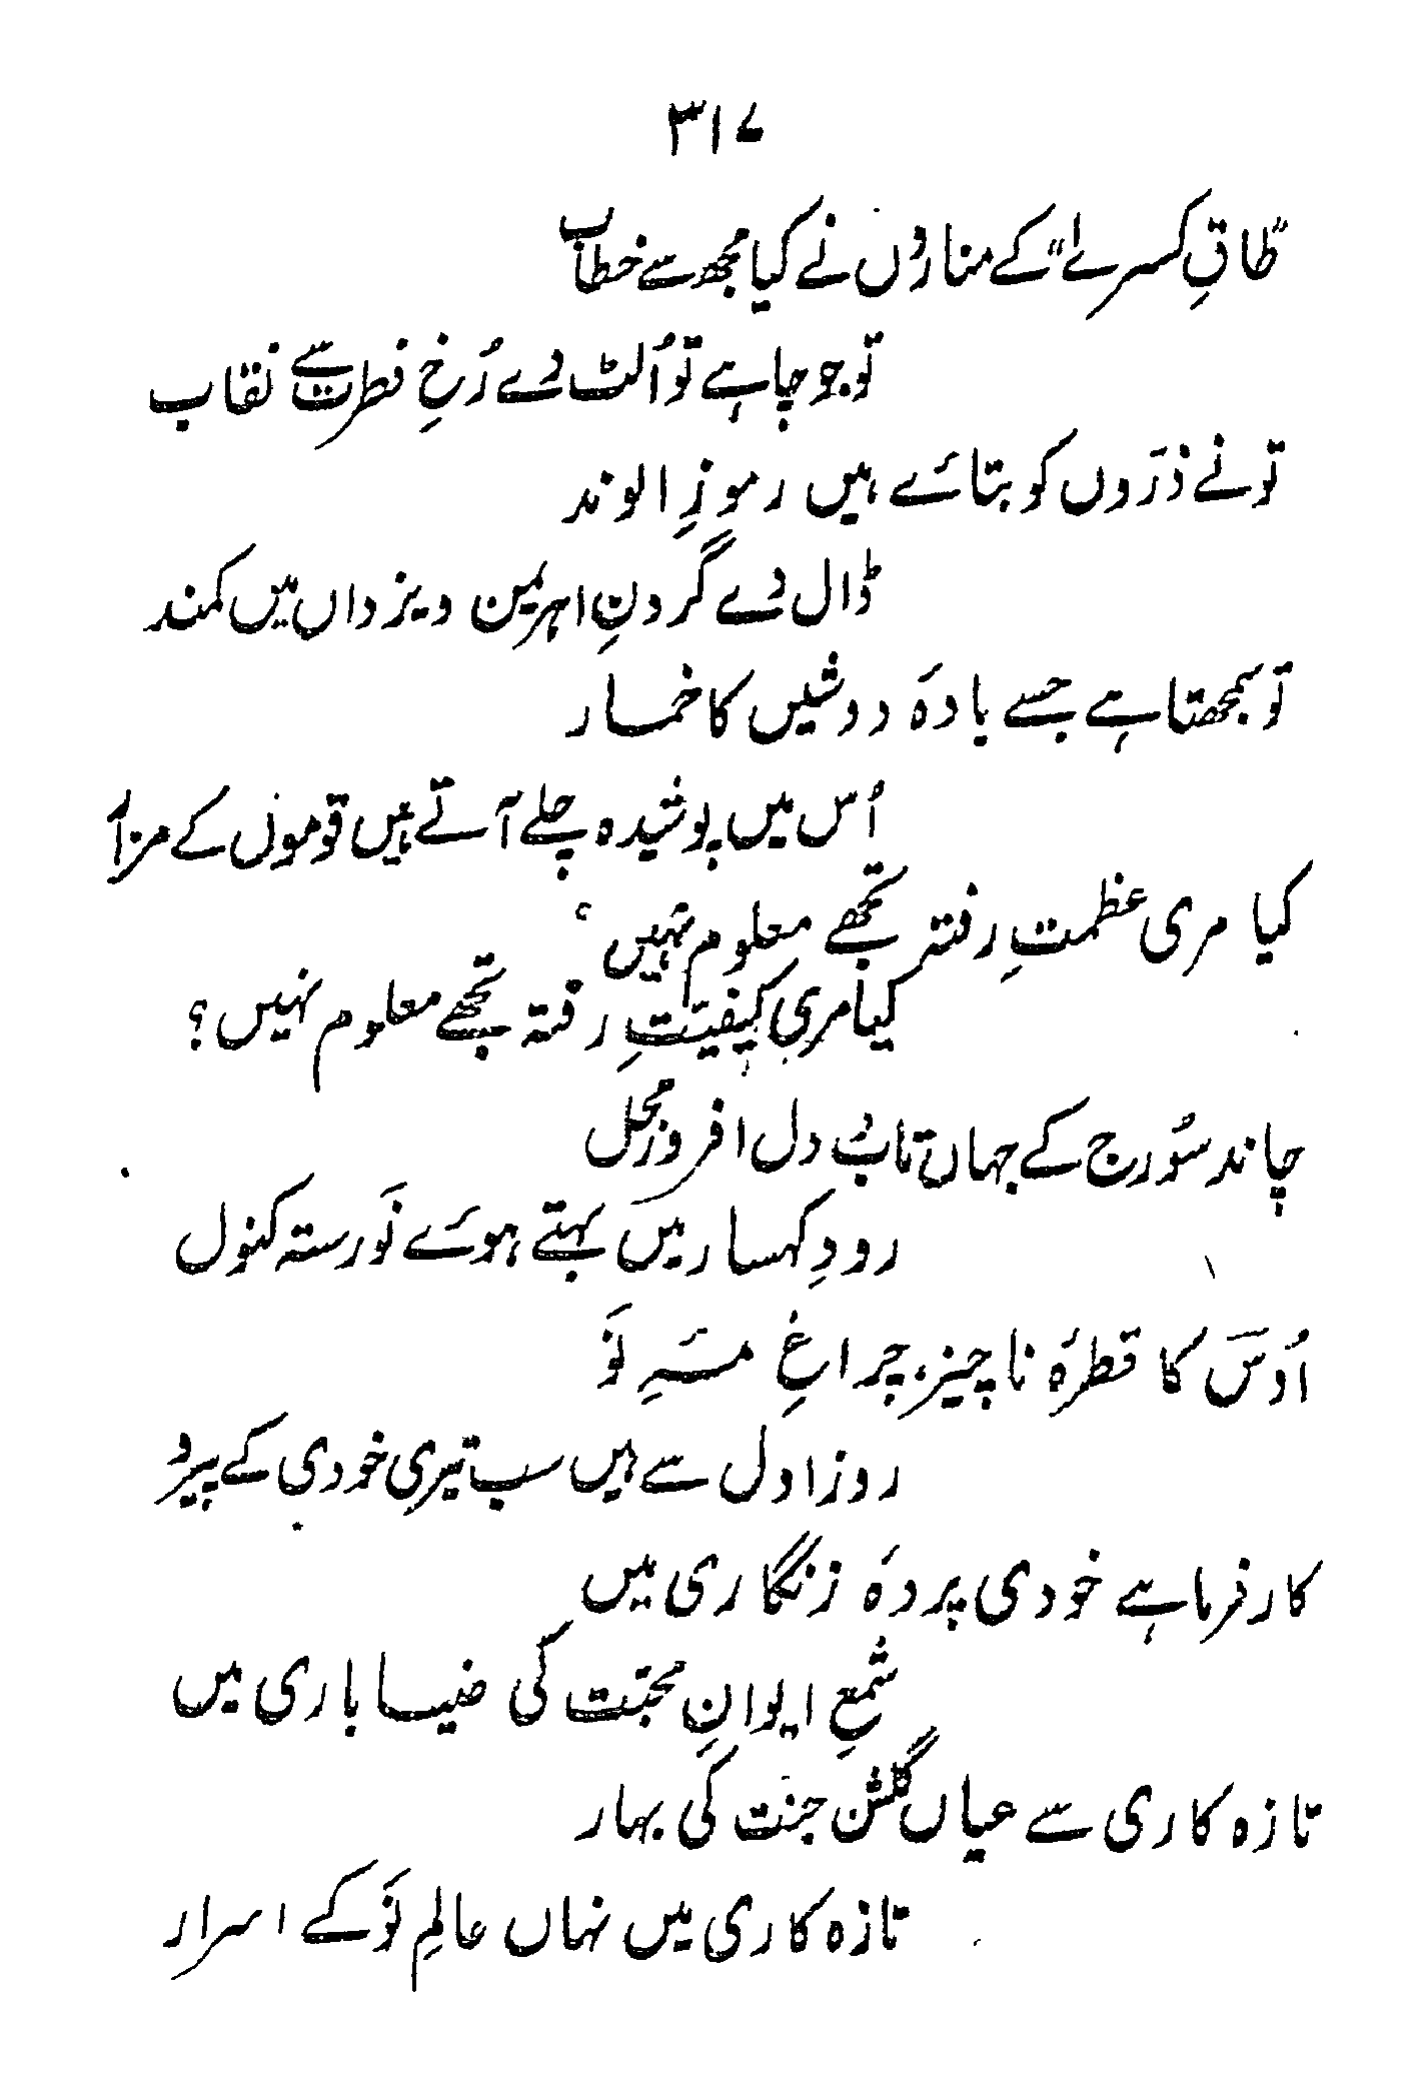 ۳۱۷
”طاقِ کسریٰ“ کے مناروں نے کیا مجھ سے خطاب
تو جو چاہے تو اُلٹ دے رُخِ فطرت سے نقاب
تو نے ذرّوں کو بتائے ہیں رموزِ الوند
ڈال دے گردنِ اہریمن و یزداں میں کمند
تو سمجھتا ہے جسے بادۂ دوشیں کا خمار
اُس میں پوشیدہ چلے آتے ہیں قوموں کے مزار
کیا مری عظمتِ رفتہ تجھے معلوم نہیں؟
کیا مری کیفیّتِ رفتہ تجھے معلوم نہیں؟
چاند سُورج کے جہاں تاب دل افروز محل
رودِ کہسار میں بہتے ہوئے نَورستہ کنول
اُوس کا قطرۂ ناچیز، چراغِ مہِ نَو
روز اول سے ہیں سب تیری خودی کے پیرو
کارفرما ہے خودی پردۂ زنگاری میں
شمعِ ایوانِ محبّت کی ضیاباری میں
تازہ کاری سے عیاں گلشن جنّت کی بہار
تازہ کاری میں نہاں عالمِ نَو کے اسرار